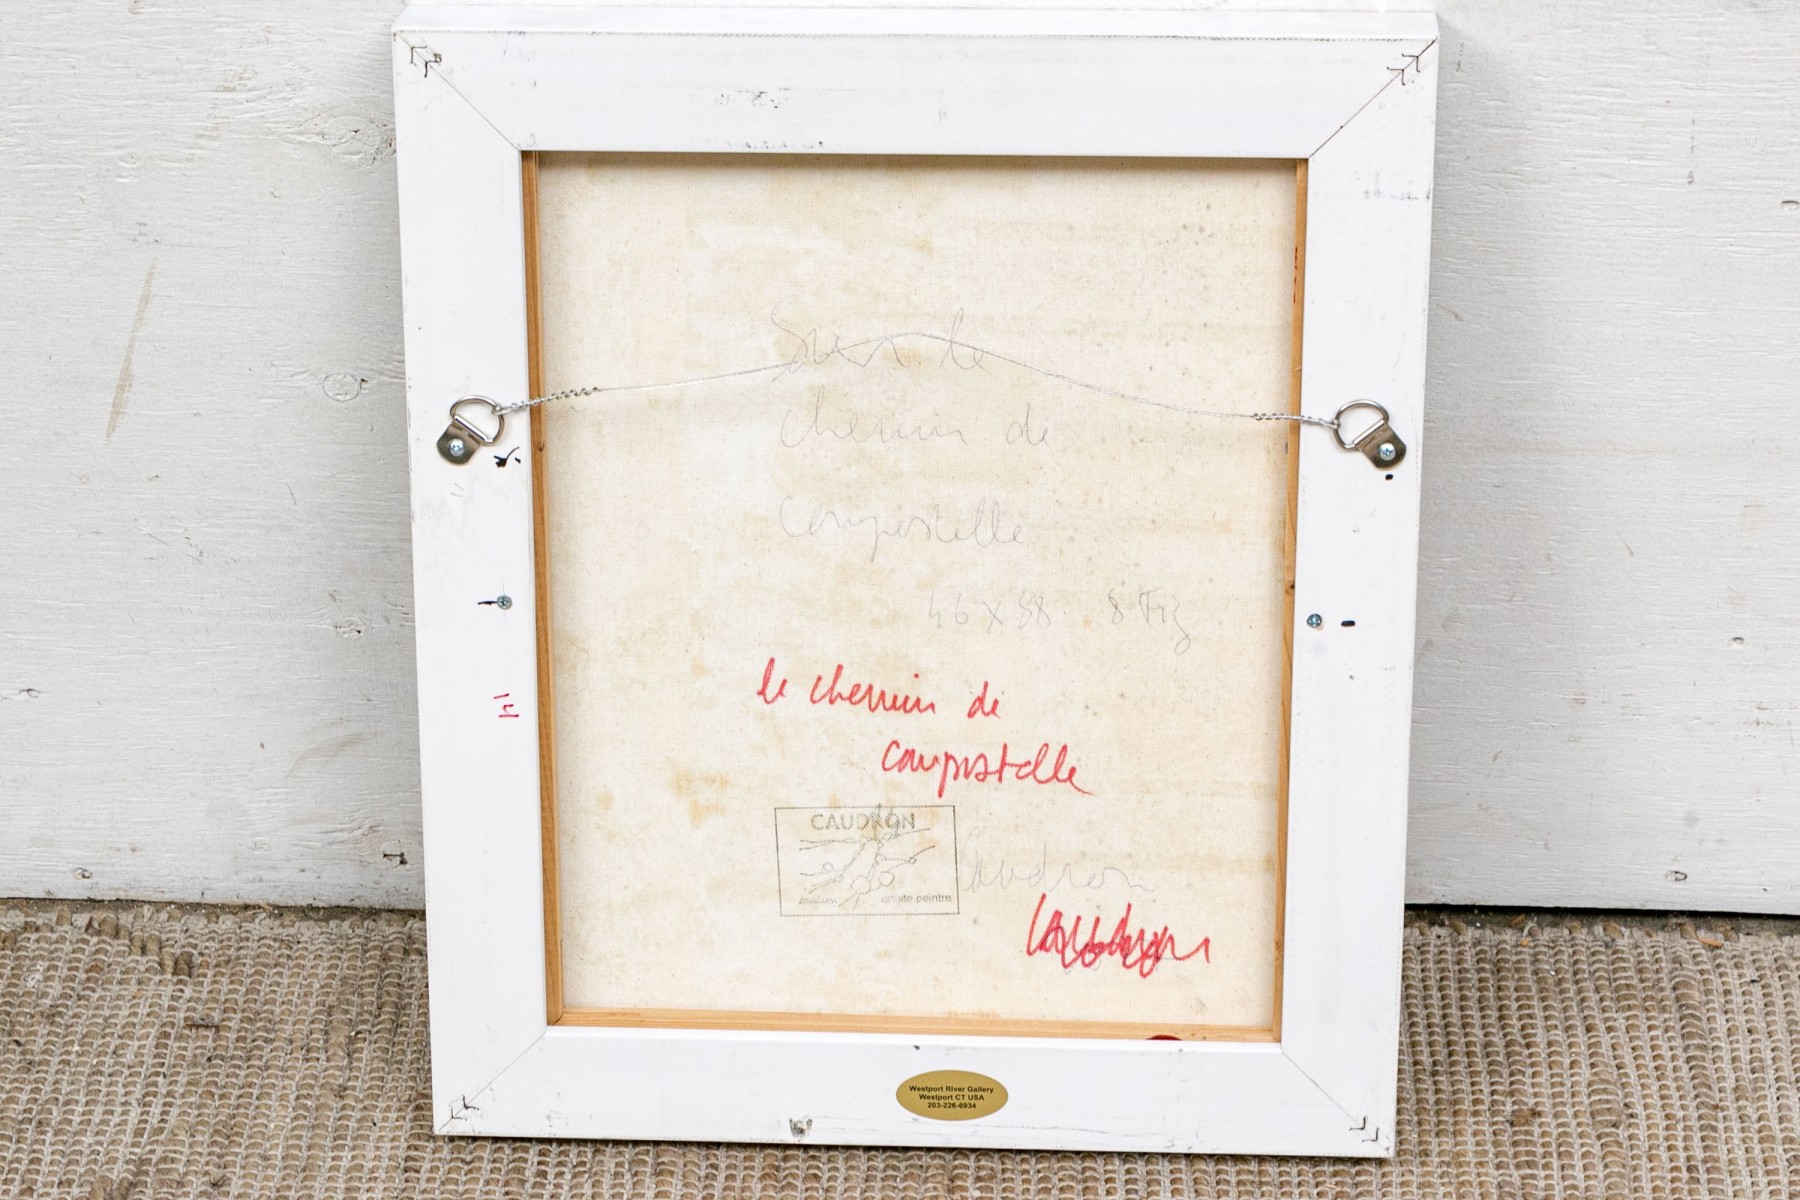 Sur le
chemin de
compostelle
46 x 38 8 Fig
le chemin de
compostelle
CAUDRON
artiste peintre
Caudron
Caudron
Westport River Gallery
Westport CT USA
203-226-6934